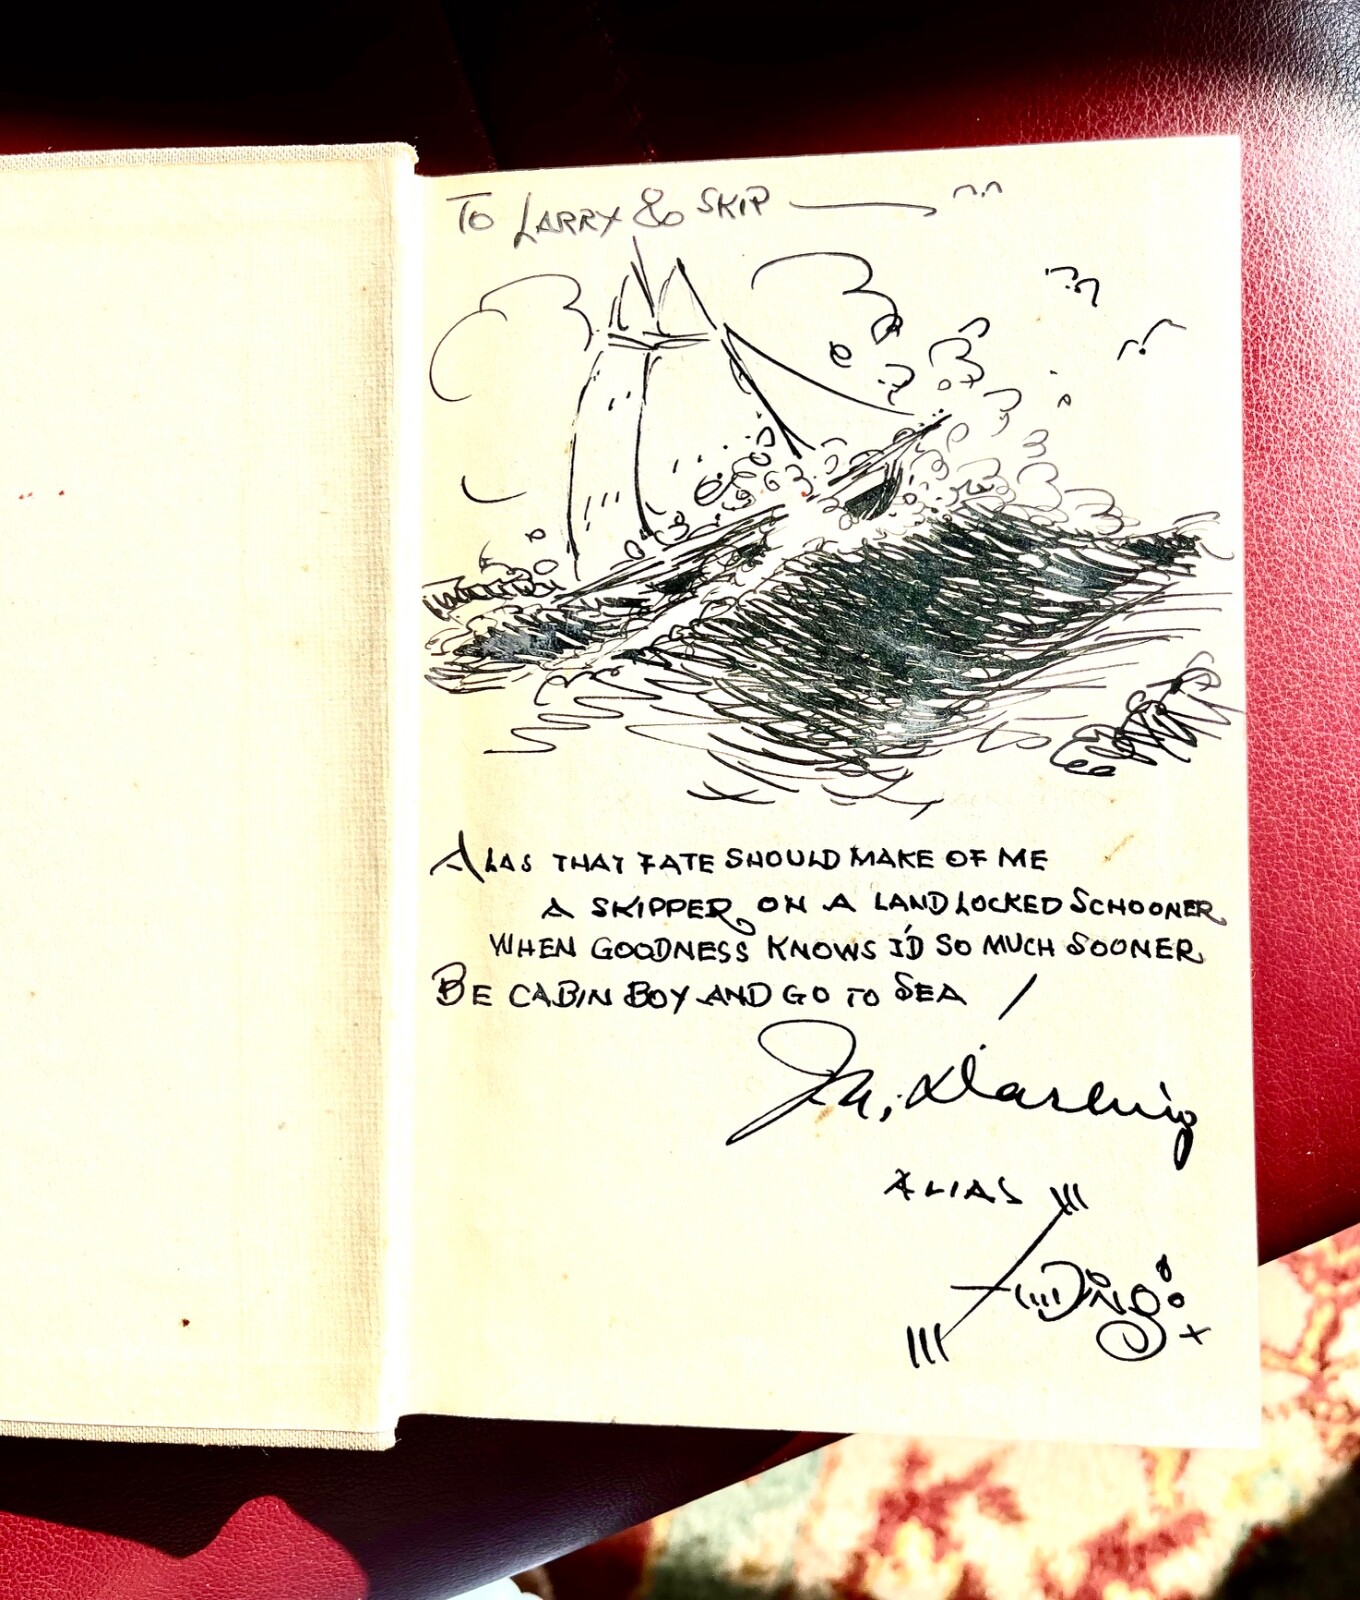 To LARRY & SKIP
ALAS THAT FATE SHOULD MAKE OF ME
A SKIPPER ON A LANDLOCKED SCHOONER
WHEN GOODNESS KNOWS I'D SO MUCH SOONER
BE CABIN BOY AND GO TO SEA /
Darling
ALIAS
Ding